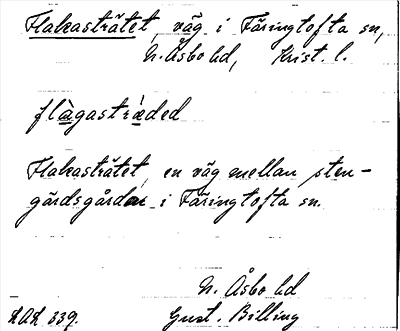 Flakasträtet, väg i Färingtofta sn,
N. Åsbo hd, Krist. l.
flàgastrǽded
Flakasträtet, en väg mellan sten-
gärdsgårdar i Färingtofta sn.
N. Åsbo hd
AAA 339. Gust. Billing